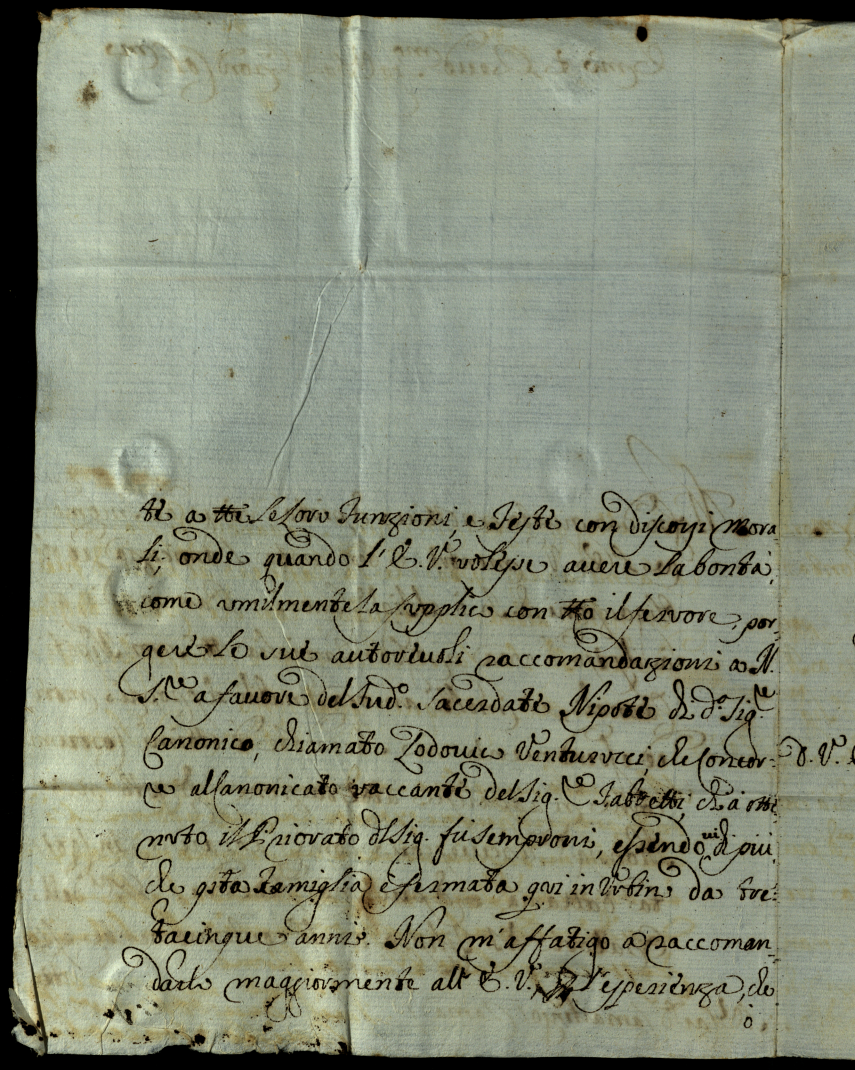 te a tte le loro Funzioni, e Feste con discorsi mora
li; onde quando l'E. V. volesse avere la bontà,
come umilmente la supplico con tto il fervore, por-
gere le sue autorevoli raccomandazioni a N.
S.re a favore del sud.o Sacerdote Nipote di d.o Sig.re
Canonico, chiamato Lodovico Venturucci, che concor-
re al Canonicato vaccante del Sig.re Fabbetti, ch'à otte
nuto il Priorato del Sig. fu Semproni, essendovi di più,
che qsta Famiglia è fermata qui in Urbino da tren
tacinque anni. Non m'affatigo a raccoman-
darlo maggiormente all'E. V., l'esperienza, che
ò
D. V.